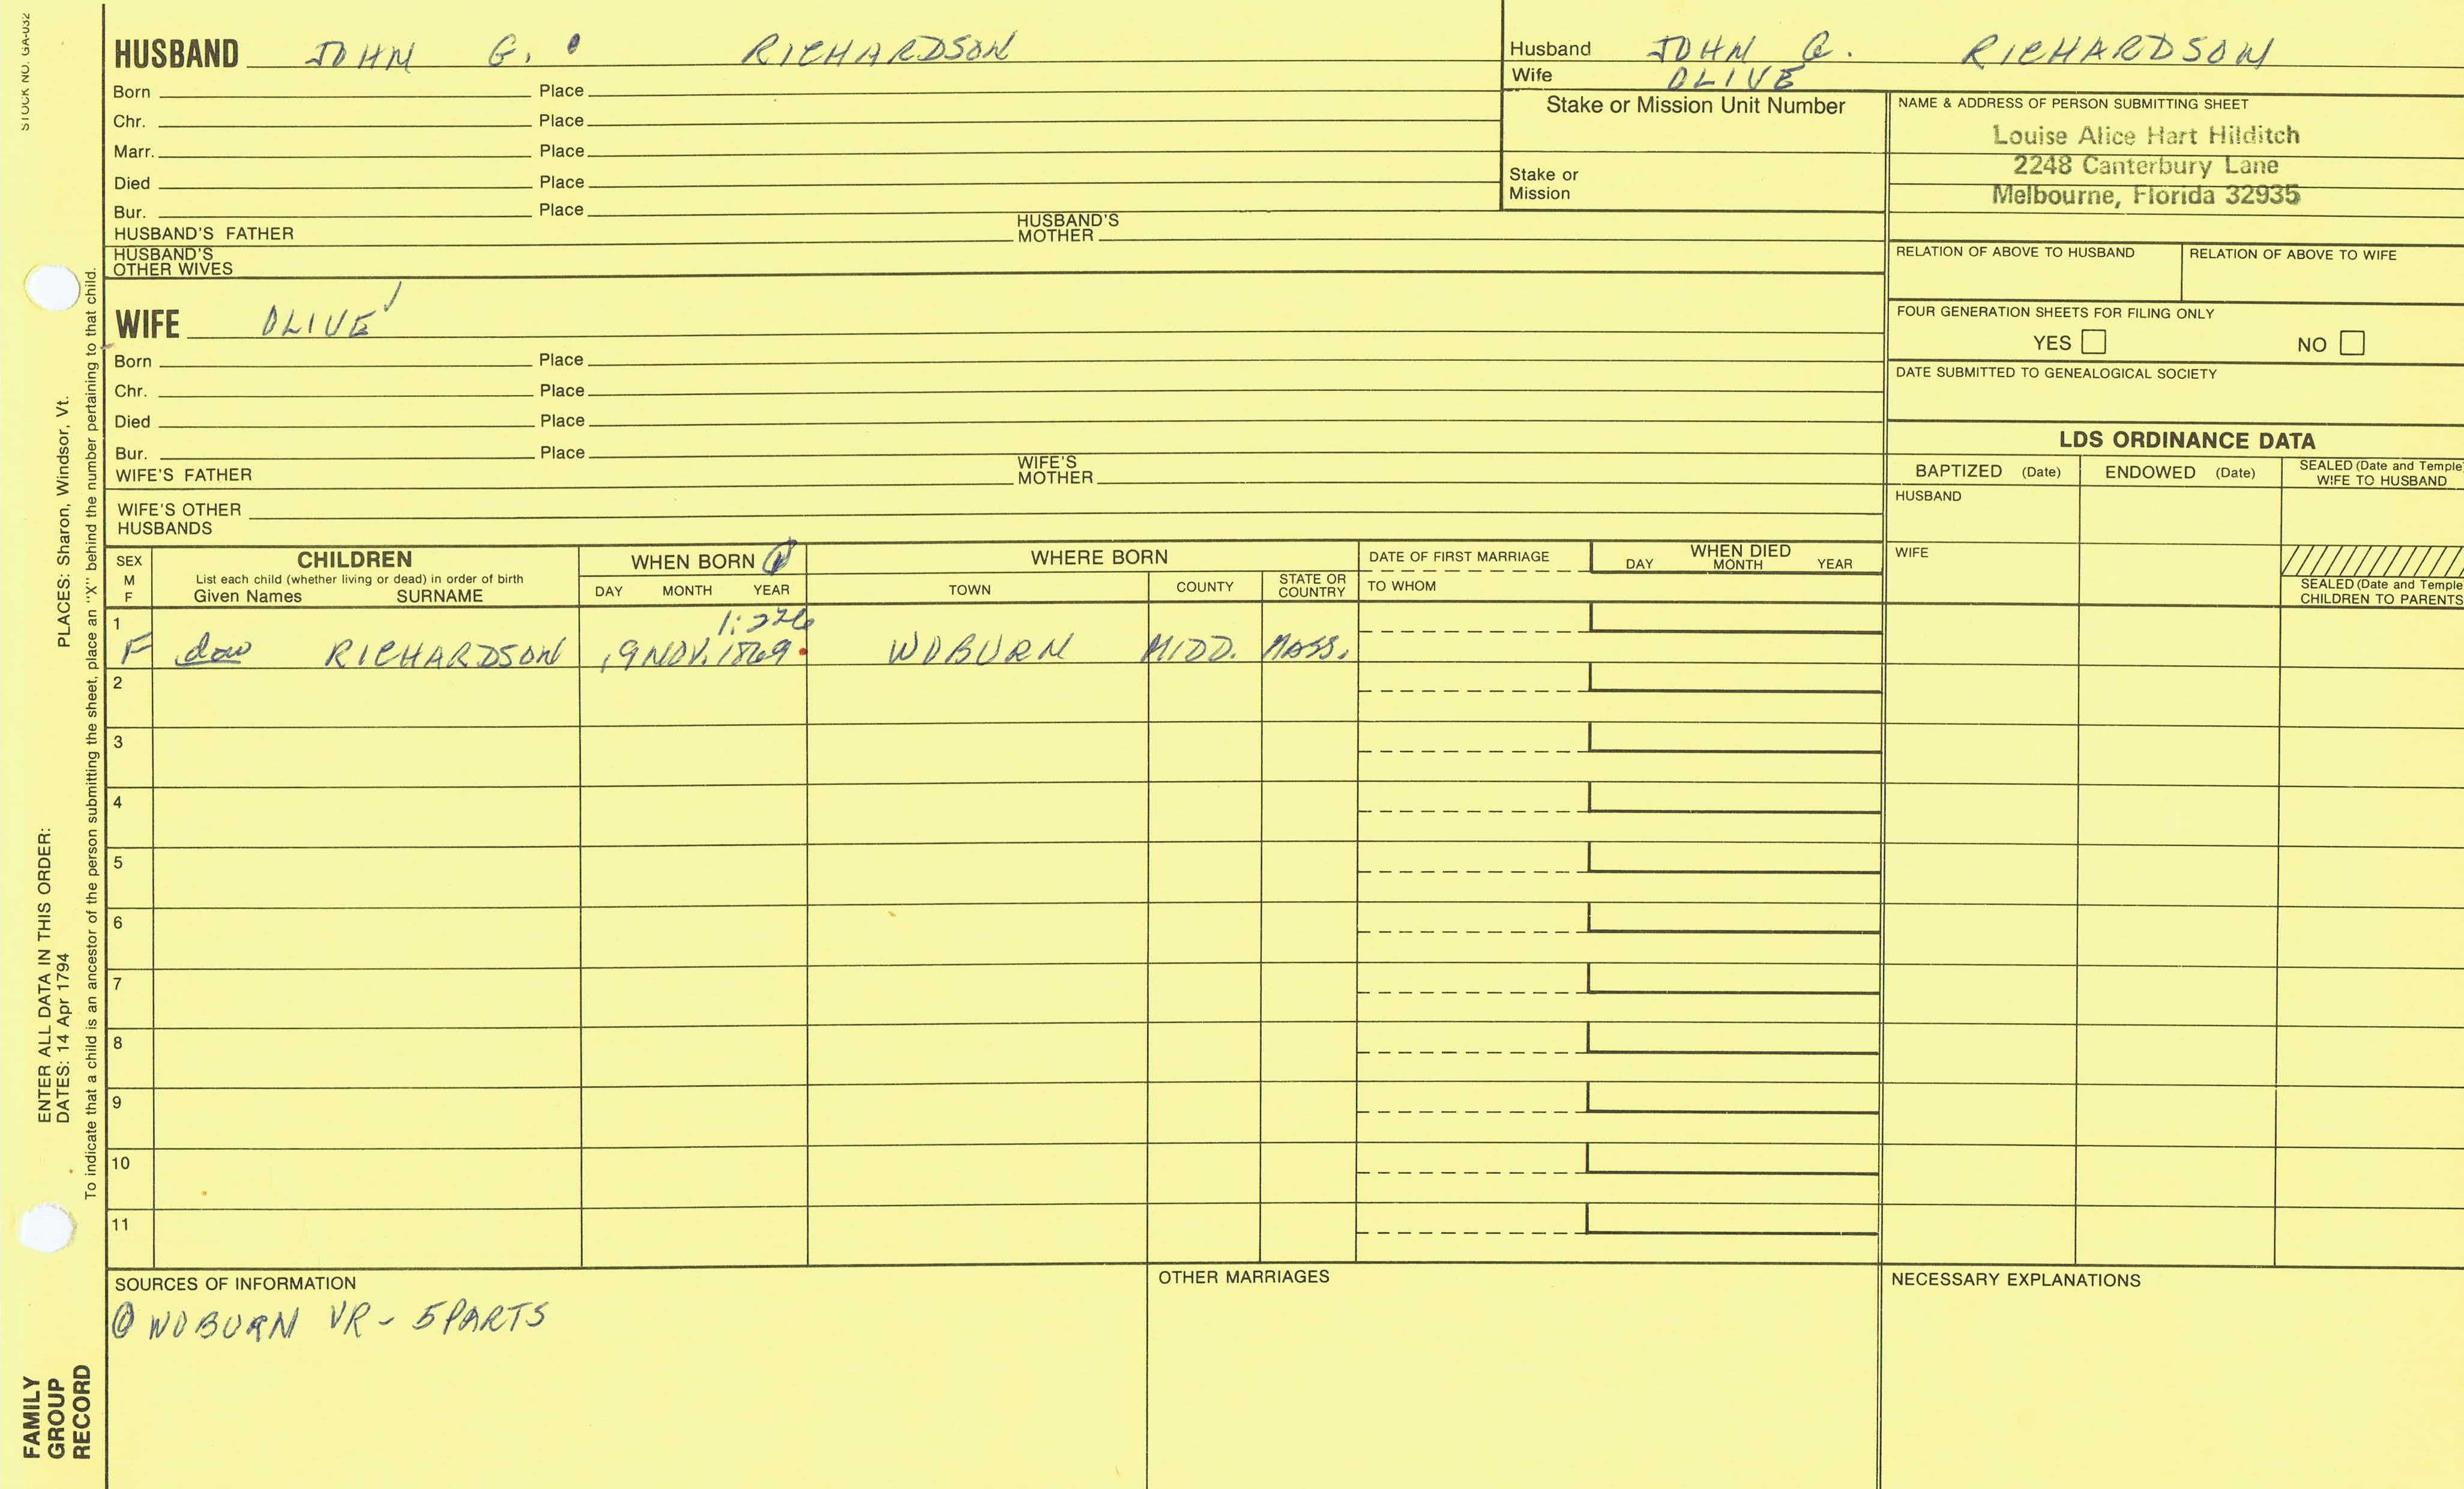 STOCK NO. GA-032
HUSBAND JOHN G. RICHARDSON
Born Place
Chr. Place
Marr. Place
Died Place
Bur. Place
HUSBAND'S FATHER HUSBAND'S MOTHER
HUSBAND'S OTHER WIVES
Husband JOHN G. RICHARDSON
Wife OLIVE
Stake or Mission Unit Number
Stake or Mission
NAME & ADDRESS OF PERSON SUBMITTING SHEET
Louise Alice Hart Hilditch
2248 Canterbury Lane
Melbourne, Florida 32935
RELATION OF ABOVE TO HUSBAND RELATION OF ABOVE TO WIFE
FOUR GENERATION SHEETS FOR FILING ONLY
YES NO
DATE SUBMITTED TO GENEALOGICAL SOCIETY
WIFE OLIVE
Born Place
Chr. Place
Died Place
Bur. Place
WIFE'S FATHER WIFE'S MOTHER
WIFE'S OTHER HUSBANDS
LDS ORDINANCE DATA
BAPTIZED (Date) ENDOWED (Date) SEALED (Date and Temple) WIFE TO HUSBAND
HUSBAND
WIFE
SEALED (Date and Temple) CHILDREN TO PARENTS
SEX M F
CHILDREN
List each child (whether living or dead) in order of birth
Given Names SURNAME
WHEN BORN
DAY MONTH YEAR
WHERE BORN
TOWN COUNTY STATE OR COUNTRY
DATE OF FIRST MARRIAGE
TO WHOM
WHEN DIED
DAY MONTH YEAR
1:226
1 F dau RICHARDSON 19 NOV. 1869 WOBURN MIDD. MASS.
2
3
4
5
6
7
8
9
10
11
SOURCES OF INFORMATION
① WOBURN VR - 5 PARTS
OTHER MARRIAGES
NECESSARY EXPLANATIONS
PLACES: Sharon, Windsor, Vt.
ENTER ALL DATA IN THIS ORDER:
DATES: 14 Apr 1794
To indicate that a child is an ancestor of the person submitting the sheet, place an "X" behind the number pertaining to that child.
FAMILY
GROUP
RECORD